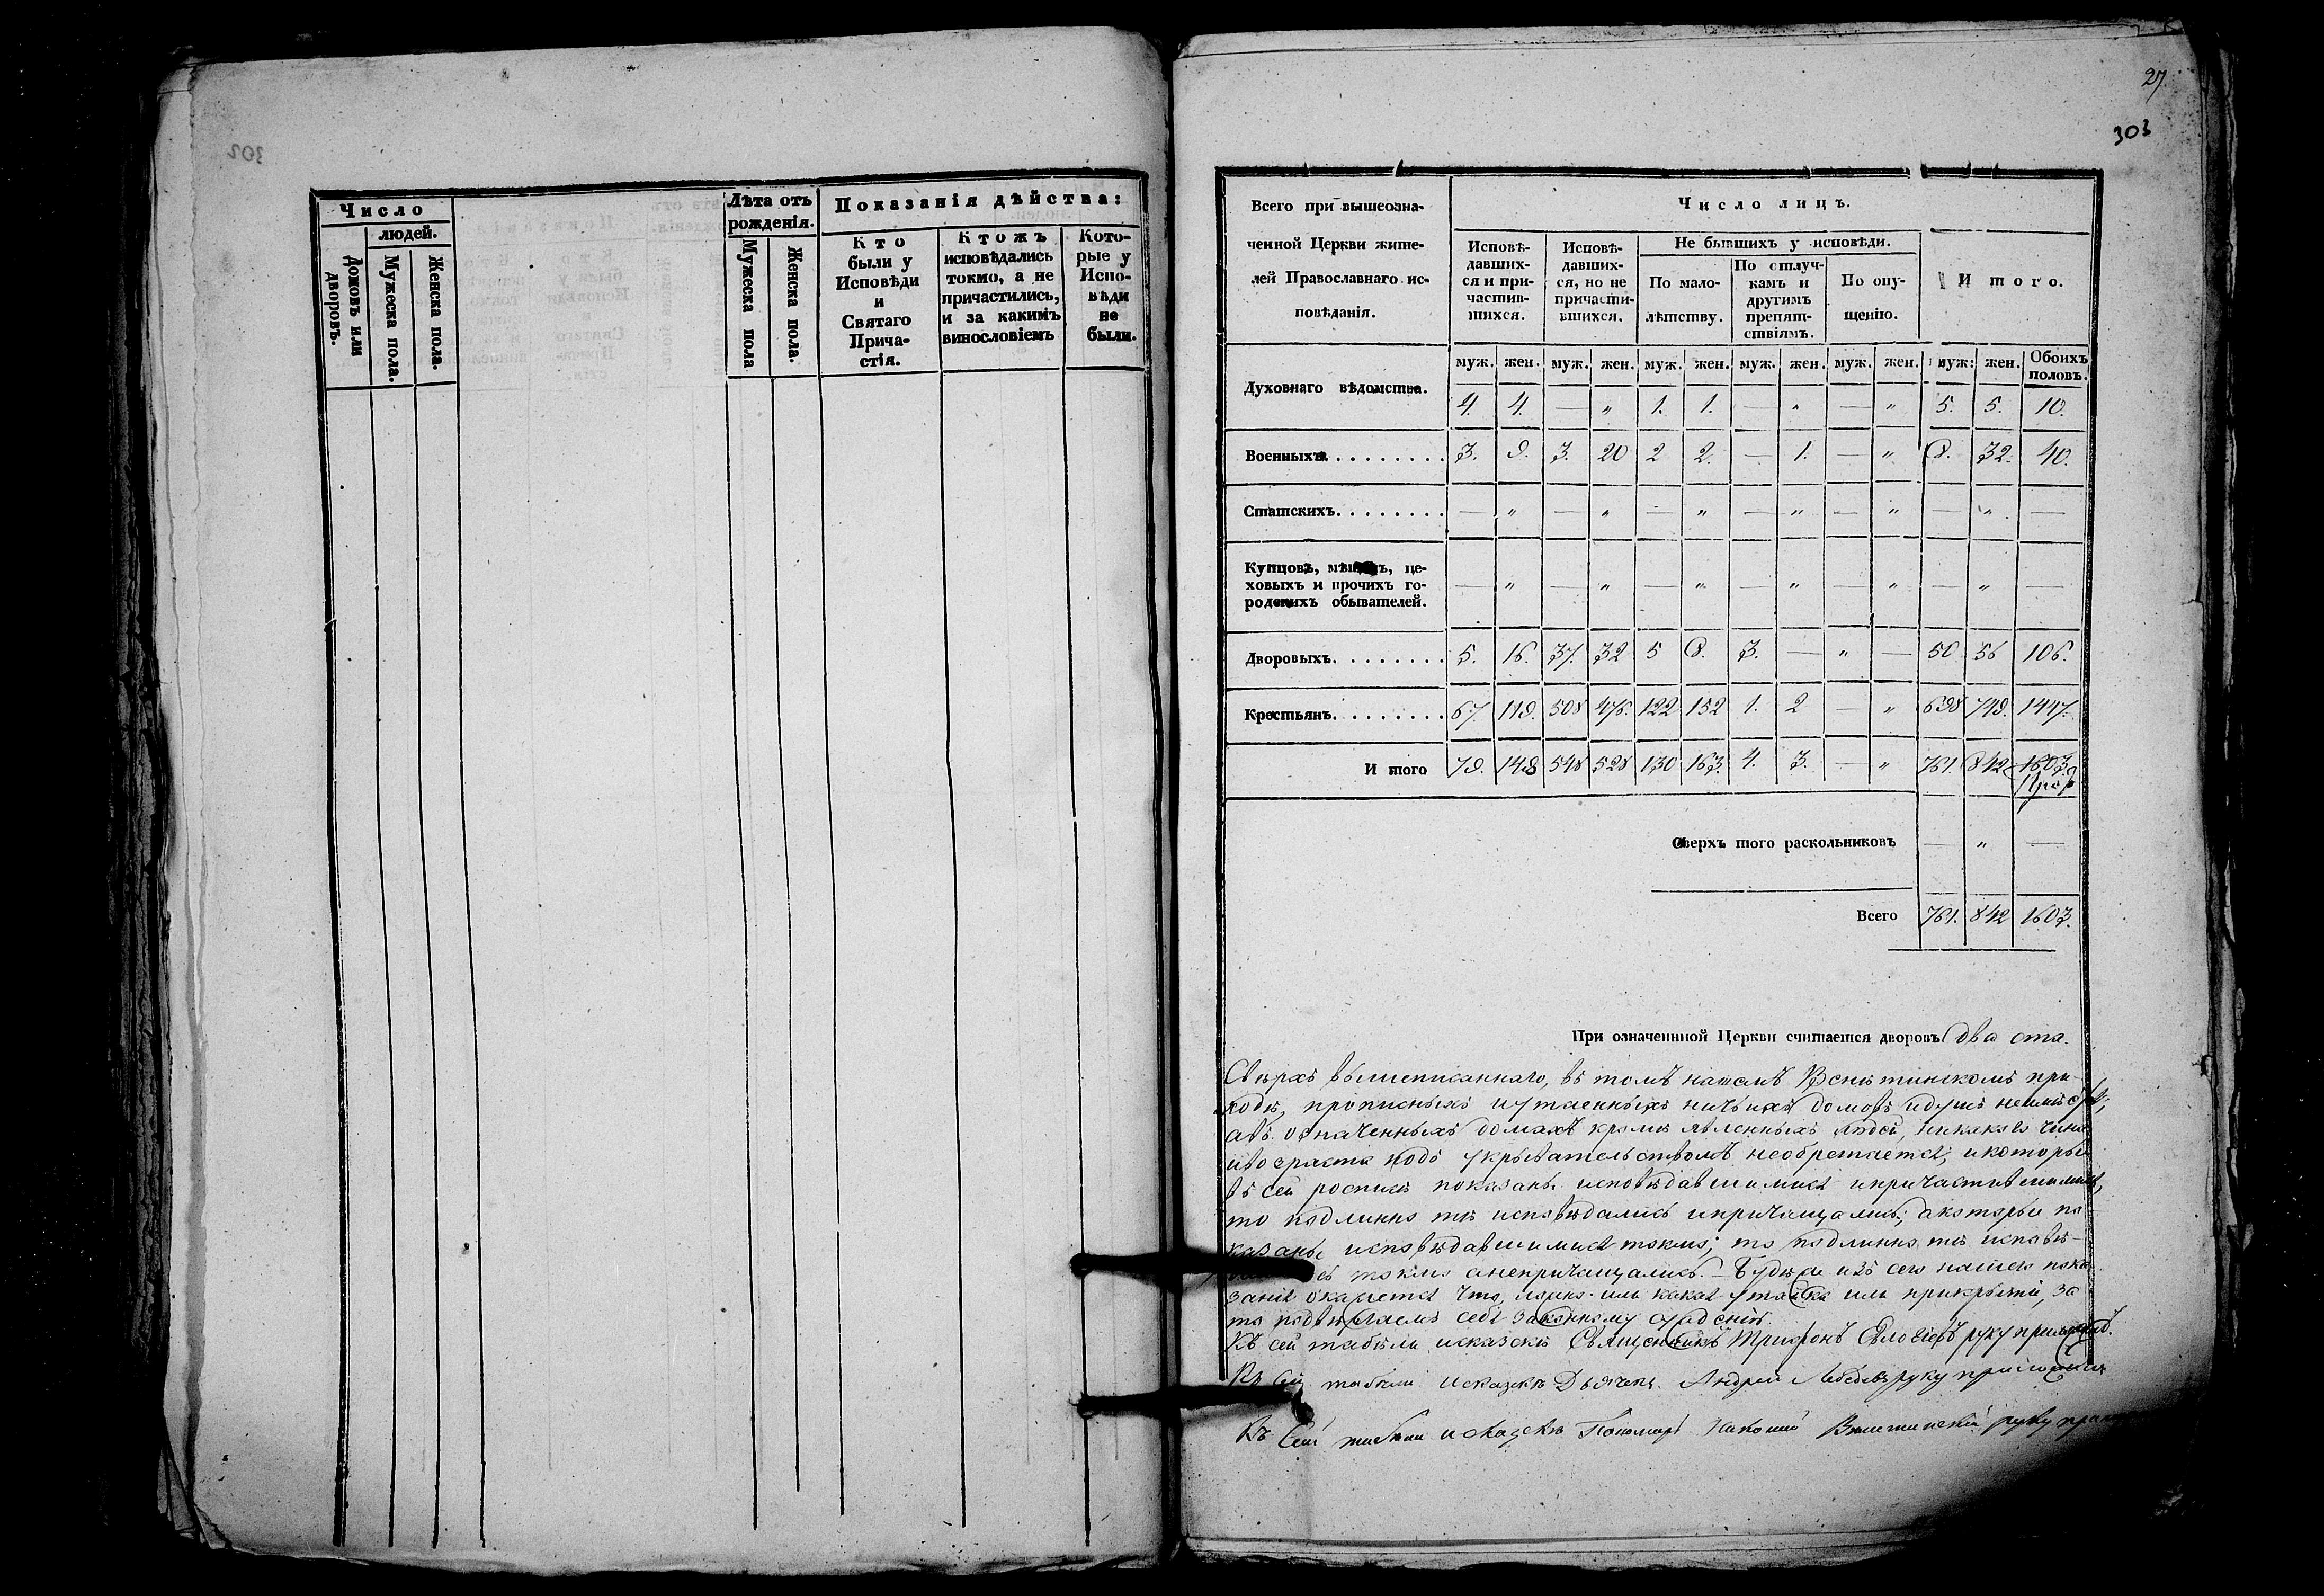 302
Число
людей.
Домовъ или дворовъ.
Мужеска пола.
Женска пола.
Лѣта отъ рожденія.
Мужеска пола
Женска пола.
Показанія дѣйства:
Кто
были у
Исповѣди
и
Святаго
Прича-
стія.
Ктожъ
исповѣдались
токмо, а не
причастились,
и за какимъ
винословіемъ
Кото-
рые у
Испо-
вѣди
не
были.
27
303
Всего при вышеозна-
ченной Церкви жите-
лей Православнаго ис-
повѣданія.
Число лицъ.
Исповѣ-
давших-
ся и при-
частив-
шихся.
Исповѣ-
давших-
ся, но не
причасти-
вшихся.
Не бывшихъ у исповѣди.
По мало-
лѣтству.
По отлуч-
камъ и
другимъ
препят-
ствіямъ.
По опу-
щенію.
И того.
муж. жен. муж. жен. муж. жен. муж. жен. муж. жен. муж: жен. Обоихъ половъ.
Духовнаго вѣдомства. 4. 4. — „ 1. 1. — „ — „ 5. 5. 10.
Военныхъ. 3. 9. 3. 20 2 2. — 1. — „ 8. 32. 40.
Статскихъ. — „ — „ — „ — „ — „ — „ —
Купцовъ, це-
ховыхъ и прочихъ го-
родскихъ обывателей. — „ — „ — „ — „ — „ — „ —
Дворовыхъ. 5. 16. 37. 32 5 8. 3. — „ — 50 56 106.
Крестьянъ. 67. 119. 508 476. 122 152 1. 2 — „ 698 749. 1447.
И того 79. 148 548 528 130 163. 4. 3. — „ 761. 842 1603.
Сверхъ того раскольниковъ — „ —
Всего 761. 842 1603.
При означеннной Церкви считается дворовъ два ста.
Сверхъ вышеписаннаго, въ томъ нашемъ при-
ходѣ, прописныхъ и утаенныхъ ничьихъ домовъ и душъ
авъ означенныхъ домахъ кромѣ явленныхъ людей, никакого чина
и возраста подъ укрывательствомъ необретается; и которые
въ сей росписи показаны исповѣдавшимися и причастившимися,
то подлинно тѣ исповѣдались и причащались; а которые по
казаны исповѣдавшимися токмо; то подлинно тѣ исповѣ-
токмо а непричащались. Будѣ же изъ сего нашего пока
занія окажется что, ложно или какая утайка или прикрытіе, за
то подвергаемъ себя законному сужденію.
Къ сей табели исказкѣ Священникъ Трифонъ руку приложилъ.
Къ сей табели исказкѣ Дьячекъ Андрей Лебедевъ руку приложилъ
Къ сей табели исказкѣ Пономарь руку